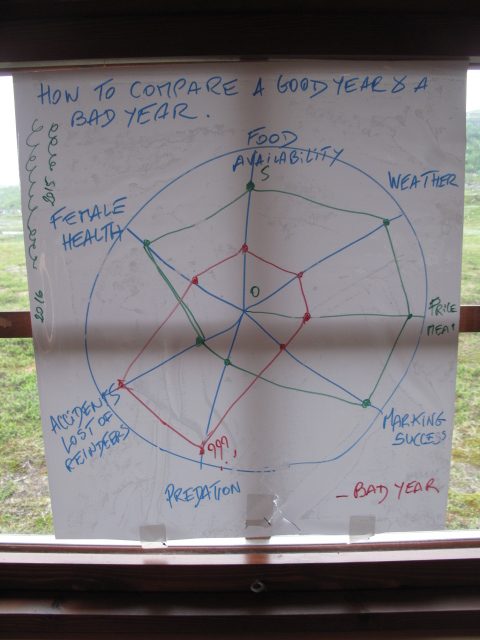 HOW TO COMPARE A GOOD YEAR & A
BAD YEAR.
FOOD
AVAILABILITY
5
WEATHER
FEMALE
HEALTH
0
PRICE
MEAT
ACCIDENTS
LOST OF
REINDEERS
MARKING
SUCCESS
???!
PREDATION
- BAD YEAR
2016